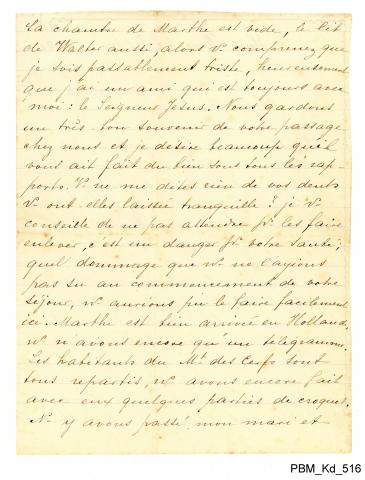 La chambre de Marthe est vide, le lit
de Walter aussi, alors v. comprenez que
je sois passablement triste, heureusement
que j'ai un ami qui est toujours avec
moi: le Seigneur Jésus. Nous gardons
un très-bon souvenir de votre passage
chez nous et je désire beaucoup qu'il
vous ait fait du bien sous tous les rap-
ports. V. ne me dites rien de vos dents
v. ont-elles laissée tranquille? je v.
conseille de ne pas attendre pr. les faire
enlever, c'est un danger pr. votre santé;
quel dommage que n. ne l'ayions
pas su au commencement de votre
séjour, n. aurions pu le faire facilement
ici. Marthe est bien arrivée en Hollande,
n. n'avons encore qu'un télégramme.
Les habitants du Mt. des Cerfs sont
tous repartis, n. avons encore fait
avec eux quelques parties de croquet.
N. y avons passé, mon mari et
PBM_Kd_516